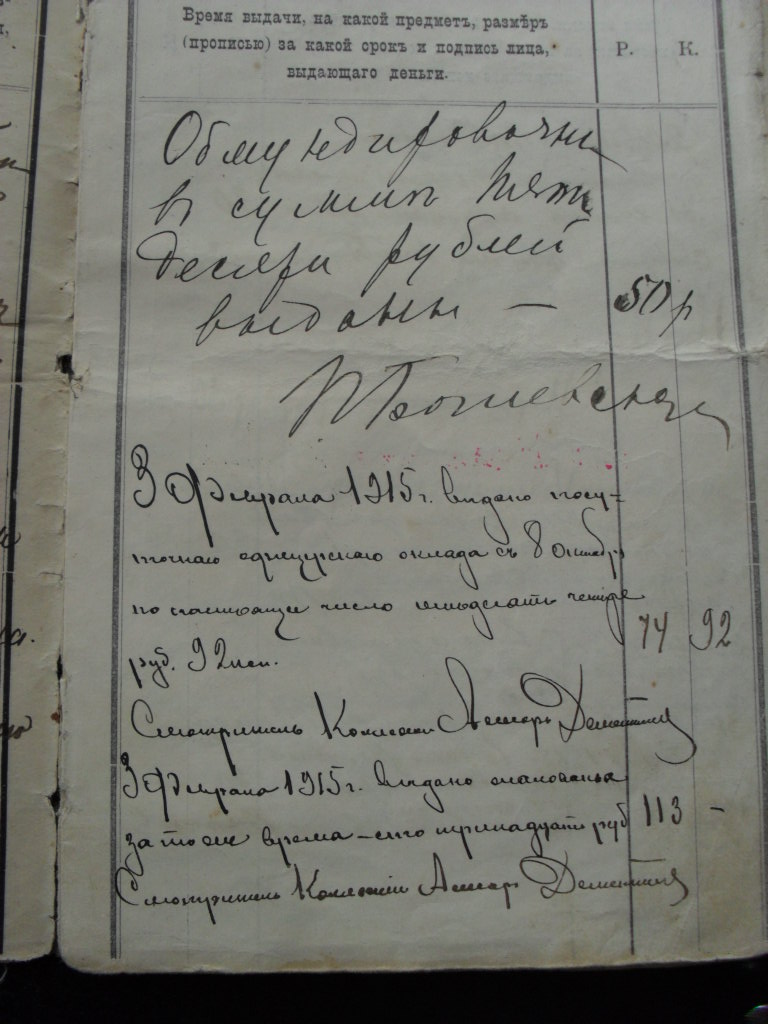 Время выдачи, на какой предметъ, размѣръ
(прописью) за какой срокъ и подпись лица,
выдающаго деньги.
Р. К.
Обмундировочны
въ суммѣ пять
десяти рублей
выданы — 50 р
3 Февраля 1915 г. выдано посу-
точнаго офицерскаго оклада съ 8 Октября
по настоящее число семьдесятъ четыре 74 92
руб. 92 коп.
Смотритель Ассесоръ Дементьевъ
3 Февраля 1915 г. выдано столовыхъ
за тоже время – сто тринадцать руб 113 –
Смотритель Ассесоръ Дементьевъ